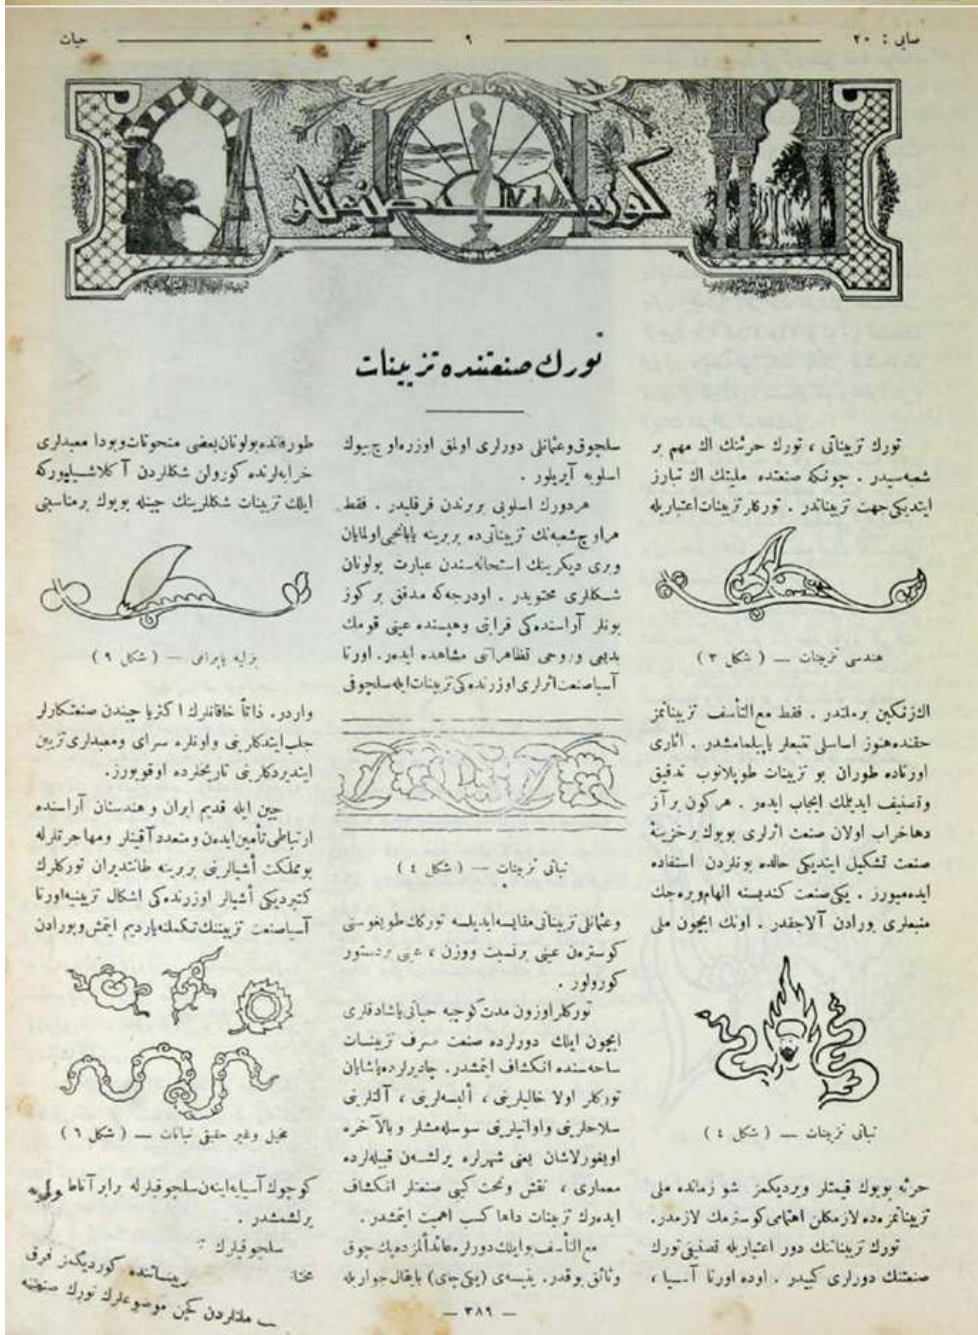 صايى : ٢٠
٩
حيات
كوزل صنعتلر
تورك صنعتنده تزيينات
تورك تزييناتى ، تورك حرثنك اك مهم بر
شعبه‌سيدر . چونكه صنعتده مليتك اك تبارز
ايتديكى جهت تزييناتدر . توركلر تزيينات اعتباريله
هندسى تزيينات — ( شكل ٣ )
اك زنكين بر ملتدر . فقط مع التأسف تزييناتمز
حقنده هنوز اساسلى تتبعلر ياپيلمامشدر . آثارى
اورتاده طوران بو تزيينات طوپلانوب تدقيق
وتصنيف ايديلمك ايجاب ايدر . هركون بر آز
دها خراب اولان صنعت اثرلرى بويوك بر خزينهٔ
صنعت تشكيل ايتديكى حالده بونلردن استفاده
ايده‌ميورز . يكى صنعت كنديسنه الهام ويره‌جك
منبعلرى بورادن آلاجقدر . اونك ايچون ملى
نباتى تزيينات — ( شكل ٤ )
حرثه بويوك قيمتلر ويرديكمز شو زمانده ملى
تزييناتمزه‌ده لازمكلن اهتمامى كوسترمك لازمدر.
تورك تزييناتنك دور اعتباريله تصنيفى تورك
صنعتنك دورلرى كبيدر . اوده اورتا آسيا ،
سلچوق وعثمانلى دورلرى اولمق اوزره اوچ بيوك
اسلوبه آيريلور .
هر دورك اسلوبى بربرندن فرقليدر . فقط
هر اوچ شعبه‌نك تزييناتى ده بربرينه يابانجى اولمايان
وبرى ديكرينك استحاله‌سندن عبارت بولونان
شكللرى محتويدر . او درجه‌كه مدقق بر كوز
بونلر آراسنده‌كى قرابتى وهپسنده عينى قومك
بديعى وروحى تظاهراتنى مشاهده ايدر. اورتا
آسيا صنعت اثرلرى اوزرنده‌كى تزيينات ايله سلچوقى
نباتى تزيينات — ( شكل ٤ )
وعثمانلى تزييناتى مقايسه ايديلسه توركك طويغوسنى
كوسترەن عينى نسبت ووزن ، عينى بر دستور
كورولور .
توركلر اوزون مدت كوچبه حياتى ياشادقلرى
ايچون ايلك دورلرده صنعت صرف تزيينات
ساحه‌سنده انكشاف ايتمشدر. چاديرلرده ياشايان
توركلر اولا خاليلرينى ، ألبسه‌لرينى ، آتلرينى
سلاحلرينى واوانيلرينى سوسله‌مشلر وبالآخره
اويغورلاشان يعنى شهرلره يرلشه‌ن قبيله‌لرده
معمارى ، نقش ونحت كبى صنعتلر انكشاف
ايده‌رك تزيينات داها كسب اهميت ايتمشدر.
مع التأسف بو ايلك دورلره عائد ألمزده پك چوق
وثائق يوقدر. ينيسه‌ى (يكى چاى) بايقال جواريله
طورفانده بولونان بعضى منحوتات وبودا معبدلرى
خرابه‌لرنده كورولن شكللردن آكلاشيلييوركه
ايلك تزيينات شكللرينك چينله بويوك بر مناسبتى
بزليه ياپراغى — ( شكل ٩ )
واردر. ذاتاً خاقانلرك اكثريا چيندن صنعتكارلر
جلب ايتدكلرينى واونلره سراى ومعبدلرى تزيين
ايتديردكلرينى تاريخلرده اوقويورز.
چين ايله قديم ايران و هندستان آراسنده
ارتباطى تأمين ايده‌ن ومتعدد آقينلر ومهاجرتلرله
بو مملكت أشيالرينى بربرينه طانتديران توركلرك
كتيرديكى أشيالر اوزرنده‌كى اشكال تزيينيه اورتا
آسيا صنعت تزييننك تكملنه ياردم ايتمش وبورادن
مخيل وغير حقيقى نباتات — ( شكل ٦ )
كوچوك آسيايه اينه‌ن سلچوقيلرله برابر آناطولى
يرلشمشدر .
سلچوقيلرك
تزييناتنده كورديكمز فرق
مختلف
ملتلردن كچن موضوعلرك تورك صنعتنه
— ٣٨٩ —